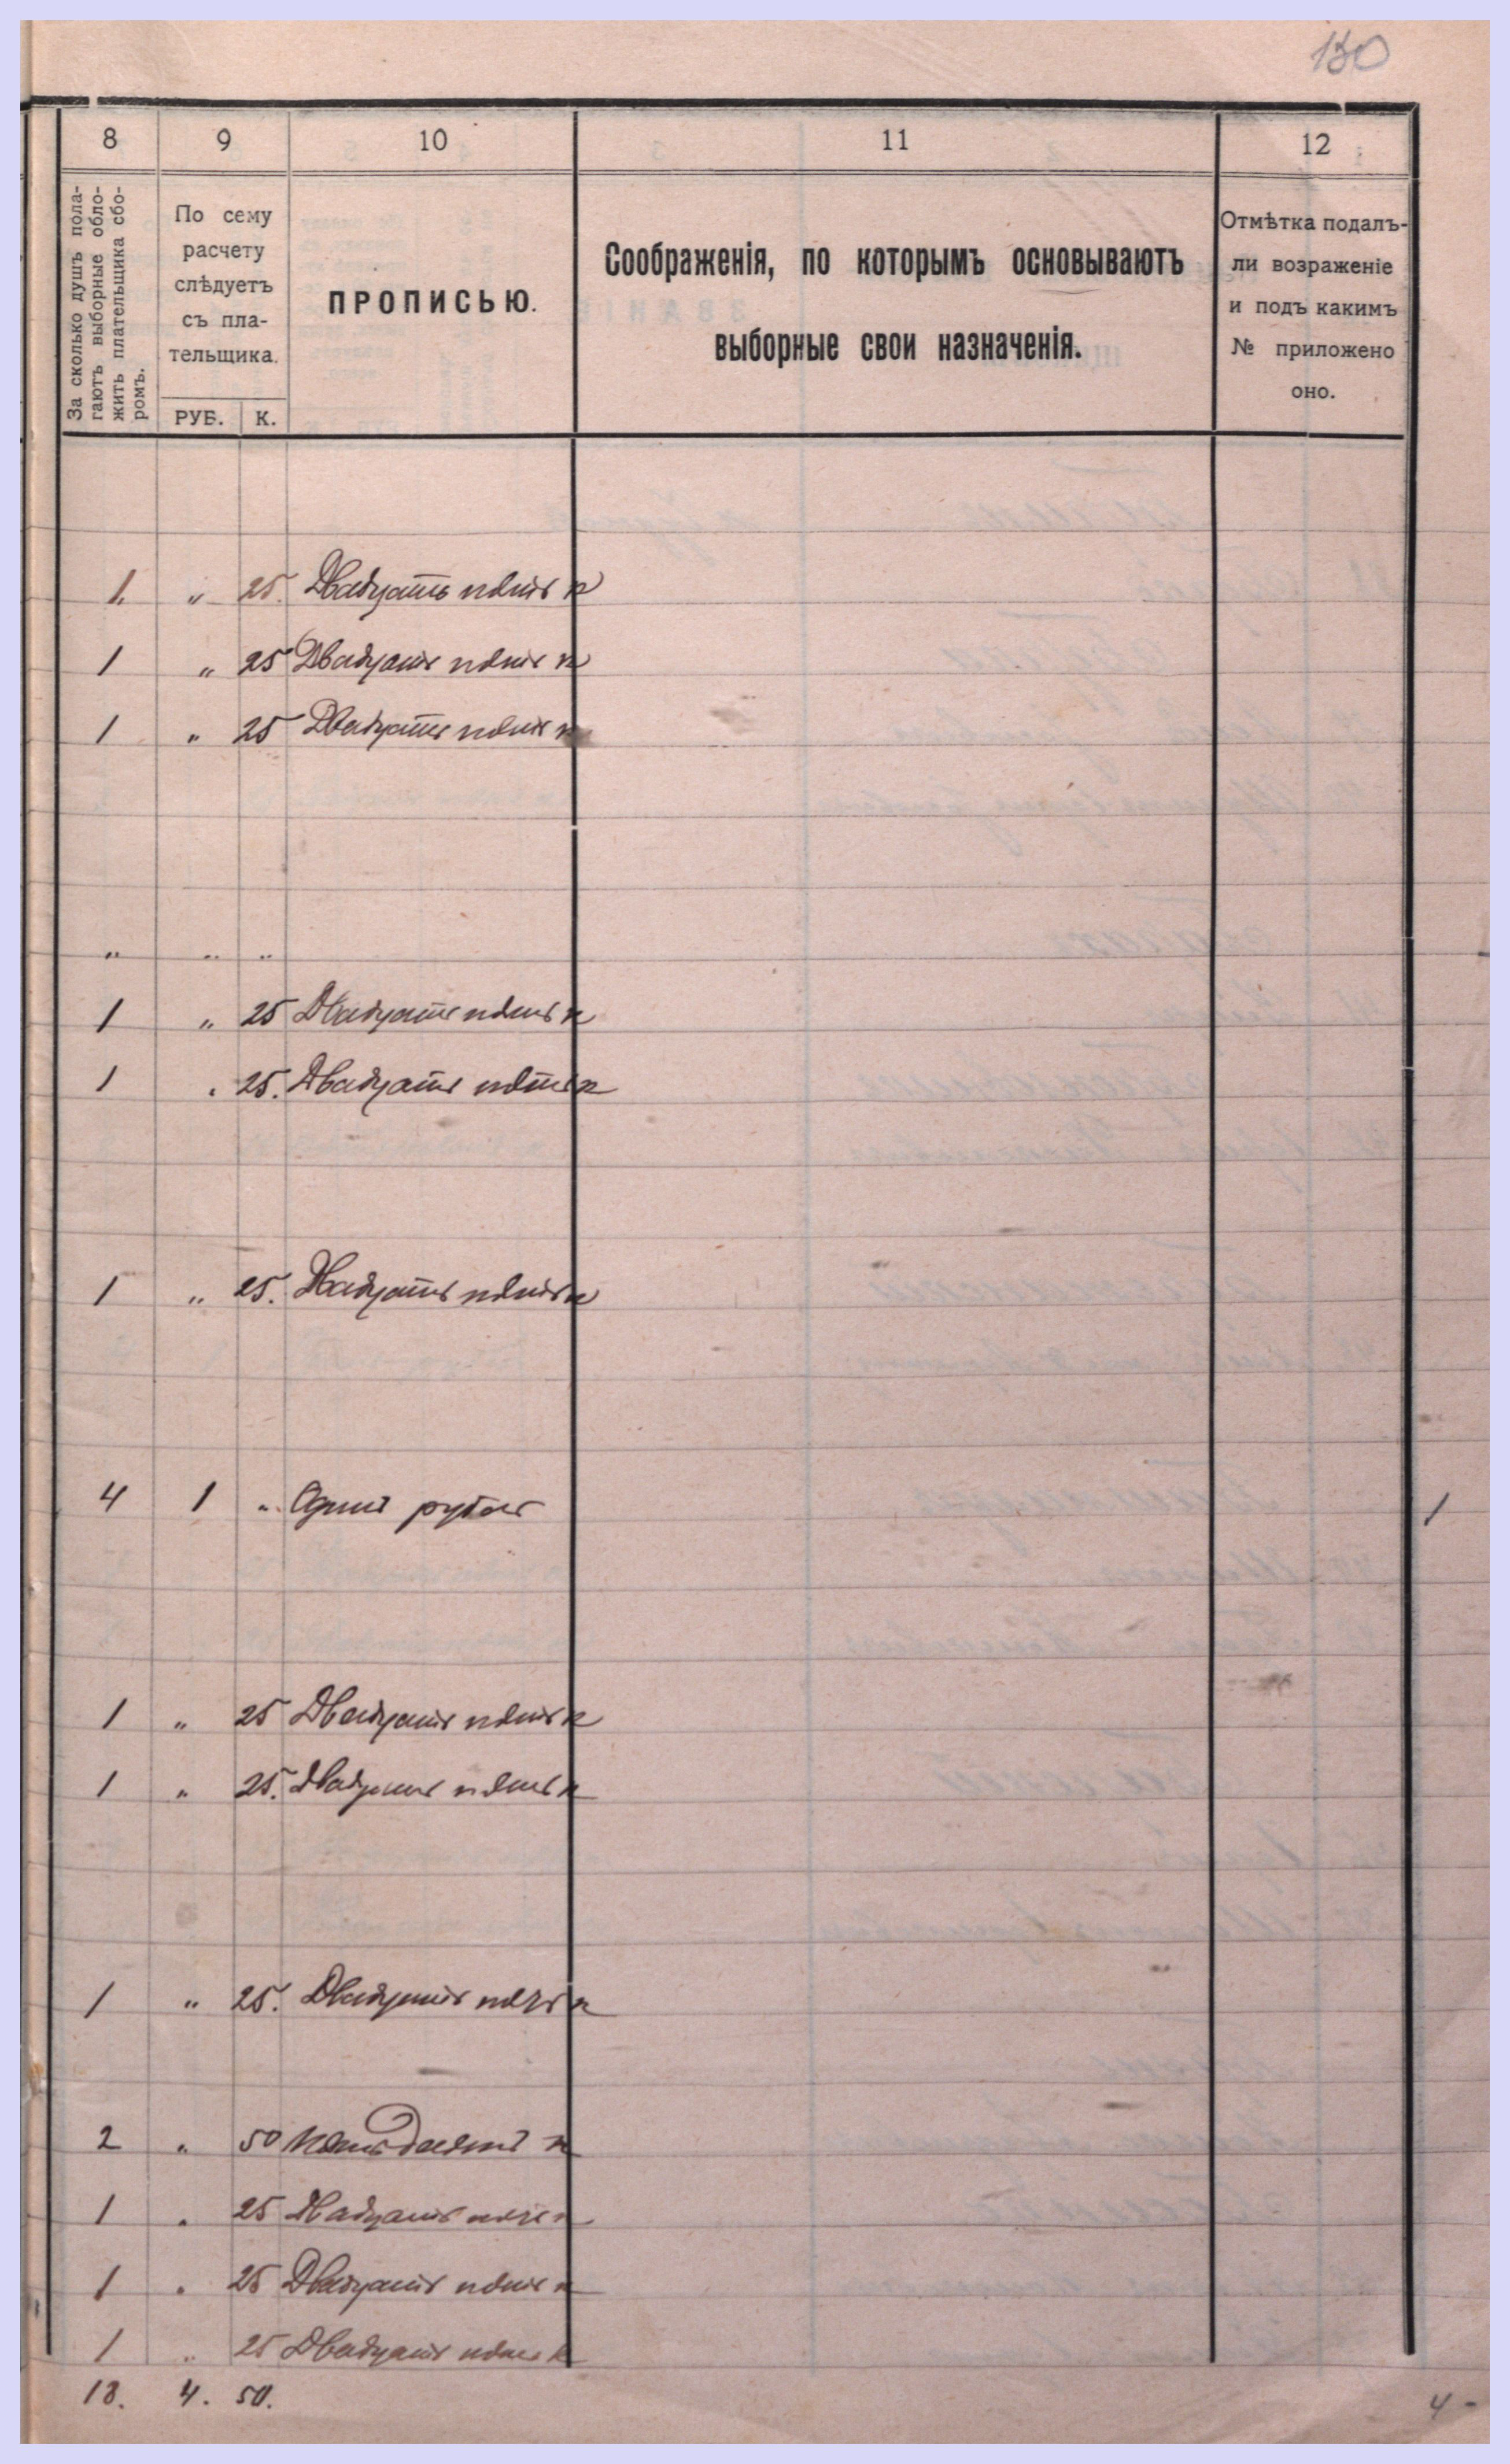 130
8 9 10 11 12
За сколько душъ пола-
гаютъ выборные обло-
жить плательщика сбо-
ромъ.
По сему
расчету
слѣдуетъ
съ пла-
тельщика.
РУБ. К.
ПРОПИСЬЮ.
Соображенія, по которымъ основываютъ
выборные свои назначенія.
Отмѣтка подалъ-
ли возраженіе
и подъ какимъ
№ приложено
оно.
1. " 25. Двадцать пять к
1 " 25 Двадцать пять к
1 " 25 Двадцать пять к
" " "
1 " 25 Двадцать пять к
1 " 25. Двадцать пять к
1 " 25. Двадцать пять к
4 1 " Одинъ рубль 1
1 " 25 Двадцать пять к
1 " 25. Двадцать пять к
1 " 25. Двадцать пять к
2 " 50 Пятьдесятъ к
1 " 25 Двадцать пять к
1 " 25 Двадцать пять к
1 " 25 Двадцать пять к
18. 4. 50. 4 -